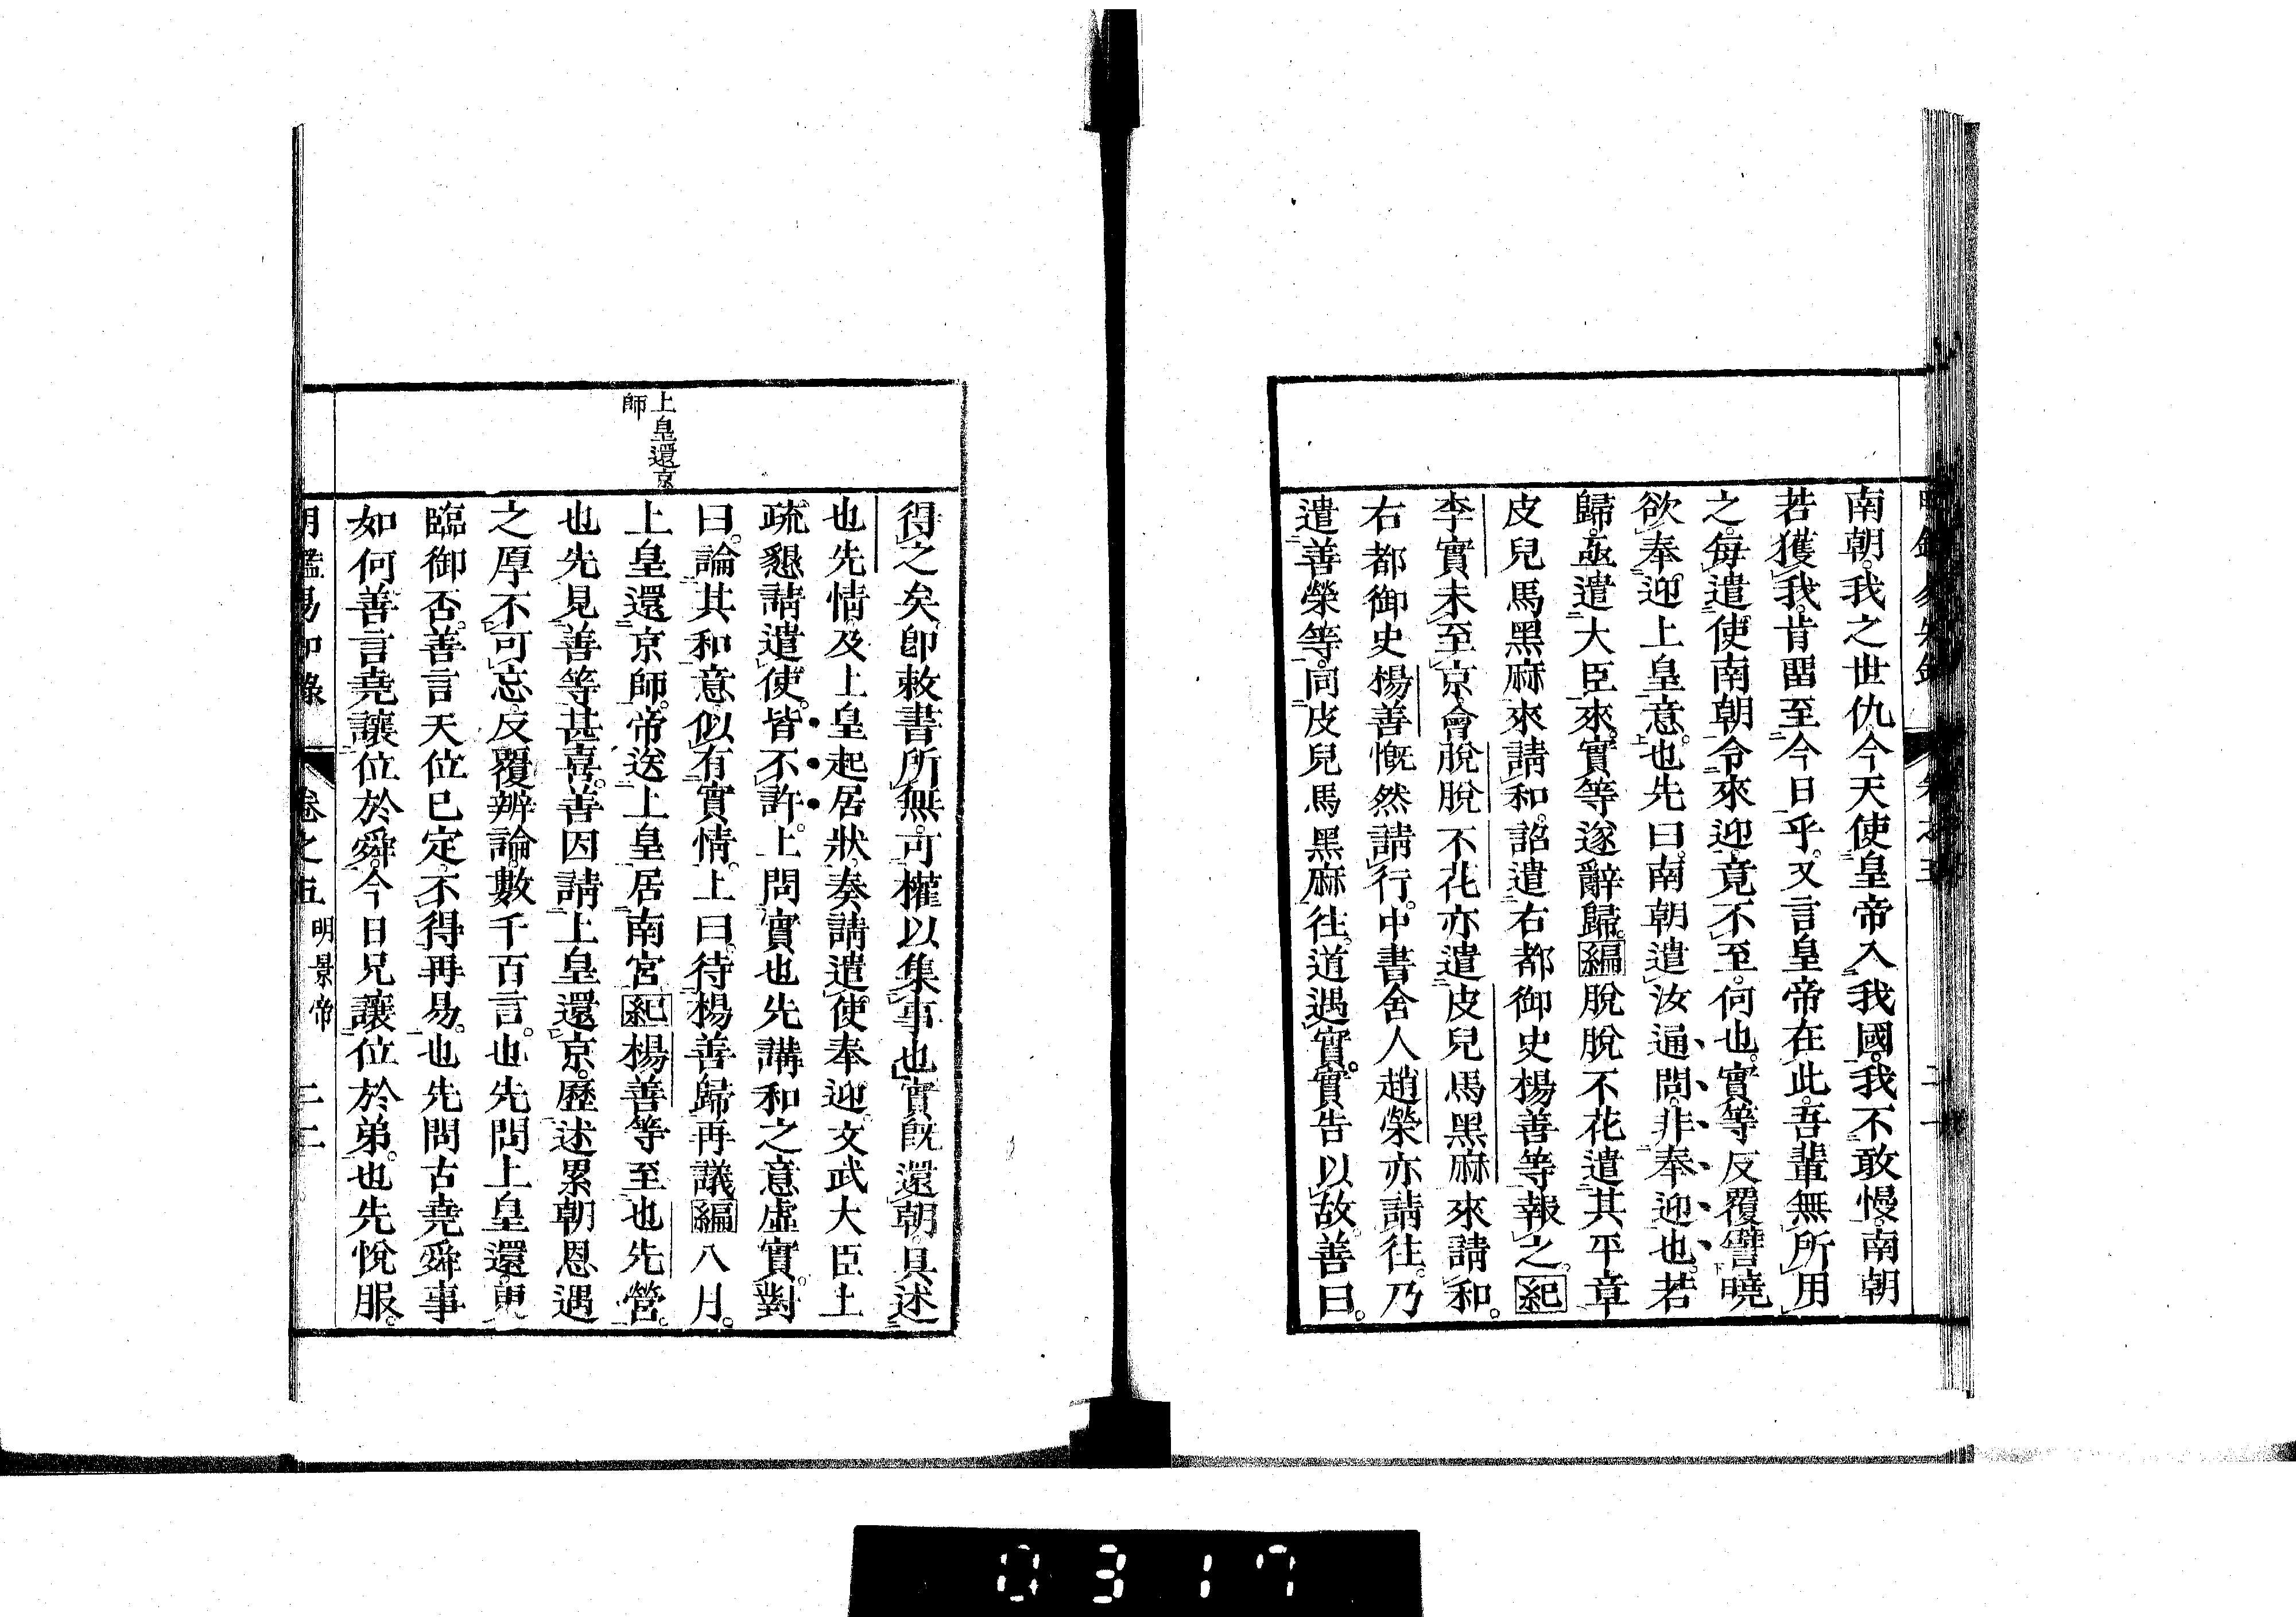 南朝。我之世仇。今天使皇帝入我國。我不敢慢。南朝
若獲我。肯留至今日乎。又言皇帝在此。吾輩無所用
之。每遣使南朝令來迎。竟不至。何也。實等反覆譬曉
欲奉迎上皇意。也先曰。南朝遣汝通問。非奉迎也。若
歸。亟遣大臣來。實等遂辭歸。編脫脫不花遣其平章
皮兒馬黑麻來請和。詔遣右都御史楊善等報之。紀
李實未至京。會脫脫不花亦遣皮兒馬黑麻來請和。
右都御史楊善慨然請行。中書舍人趙榮亦請往。乃
遣善榮等。同皮兒馬黑麻往。道遇實。實告以故。善曰。
得之矣。即敕書所無。可權以集事也。實既還朝。具述
也先情。及上皇起居狀。奏請遣使奉迎。文武大臣上
疏懇請遣使。皆不許。上問實也先講和之意虛實。對
曰。論其和意。似有實情。上曰。待楊善歸再議編八月。
上皇還京師。帝送上皇居南宮紀楊善等至也先營。
也先見善等甚喜。善因請上皇還京。歷述累朝恩遇
之厚不可忘。反覆辨論。數千百言。也先問上皇還。更
臨御否。善言天位已定。不得再易。也先問古堯舜事
如何善言堯讓位於舜。今日兄讓位於弟。也先悅服。
上皇還京
師
明鑑易知錄 卷之五 明景帝 二二
0317